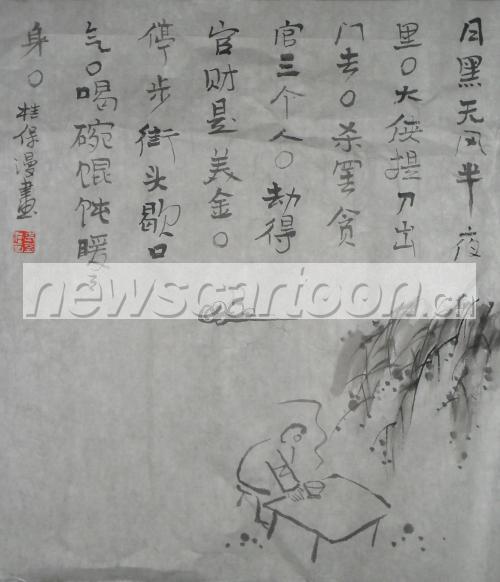 月黑天风半夜
里〇大侠提刀出
门去〇杀罢贪
官三个人〇劫得
官财是美金〇
停步街头歇口
气〇喝碗馄饨暖
身〇
桂保漫畫
newscartoon.cn